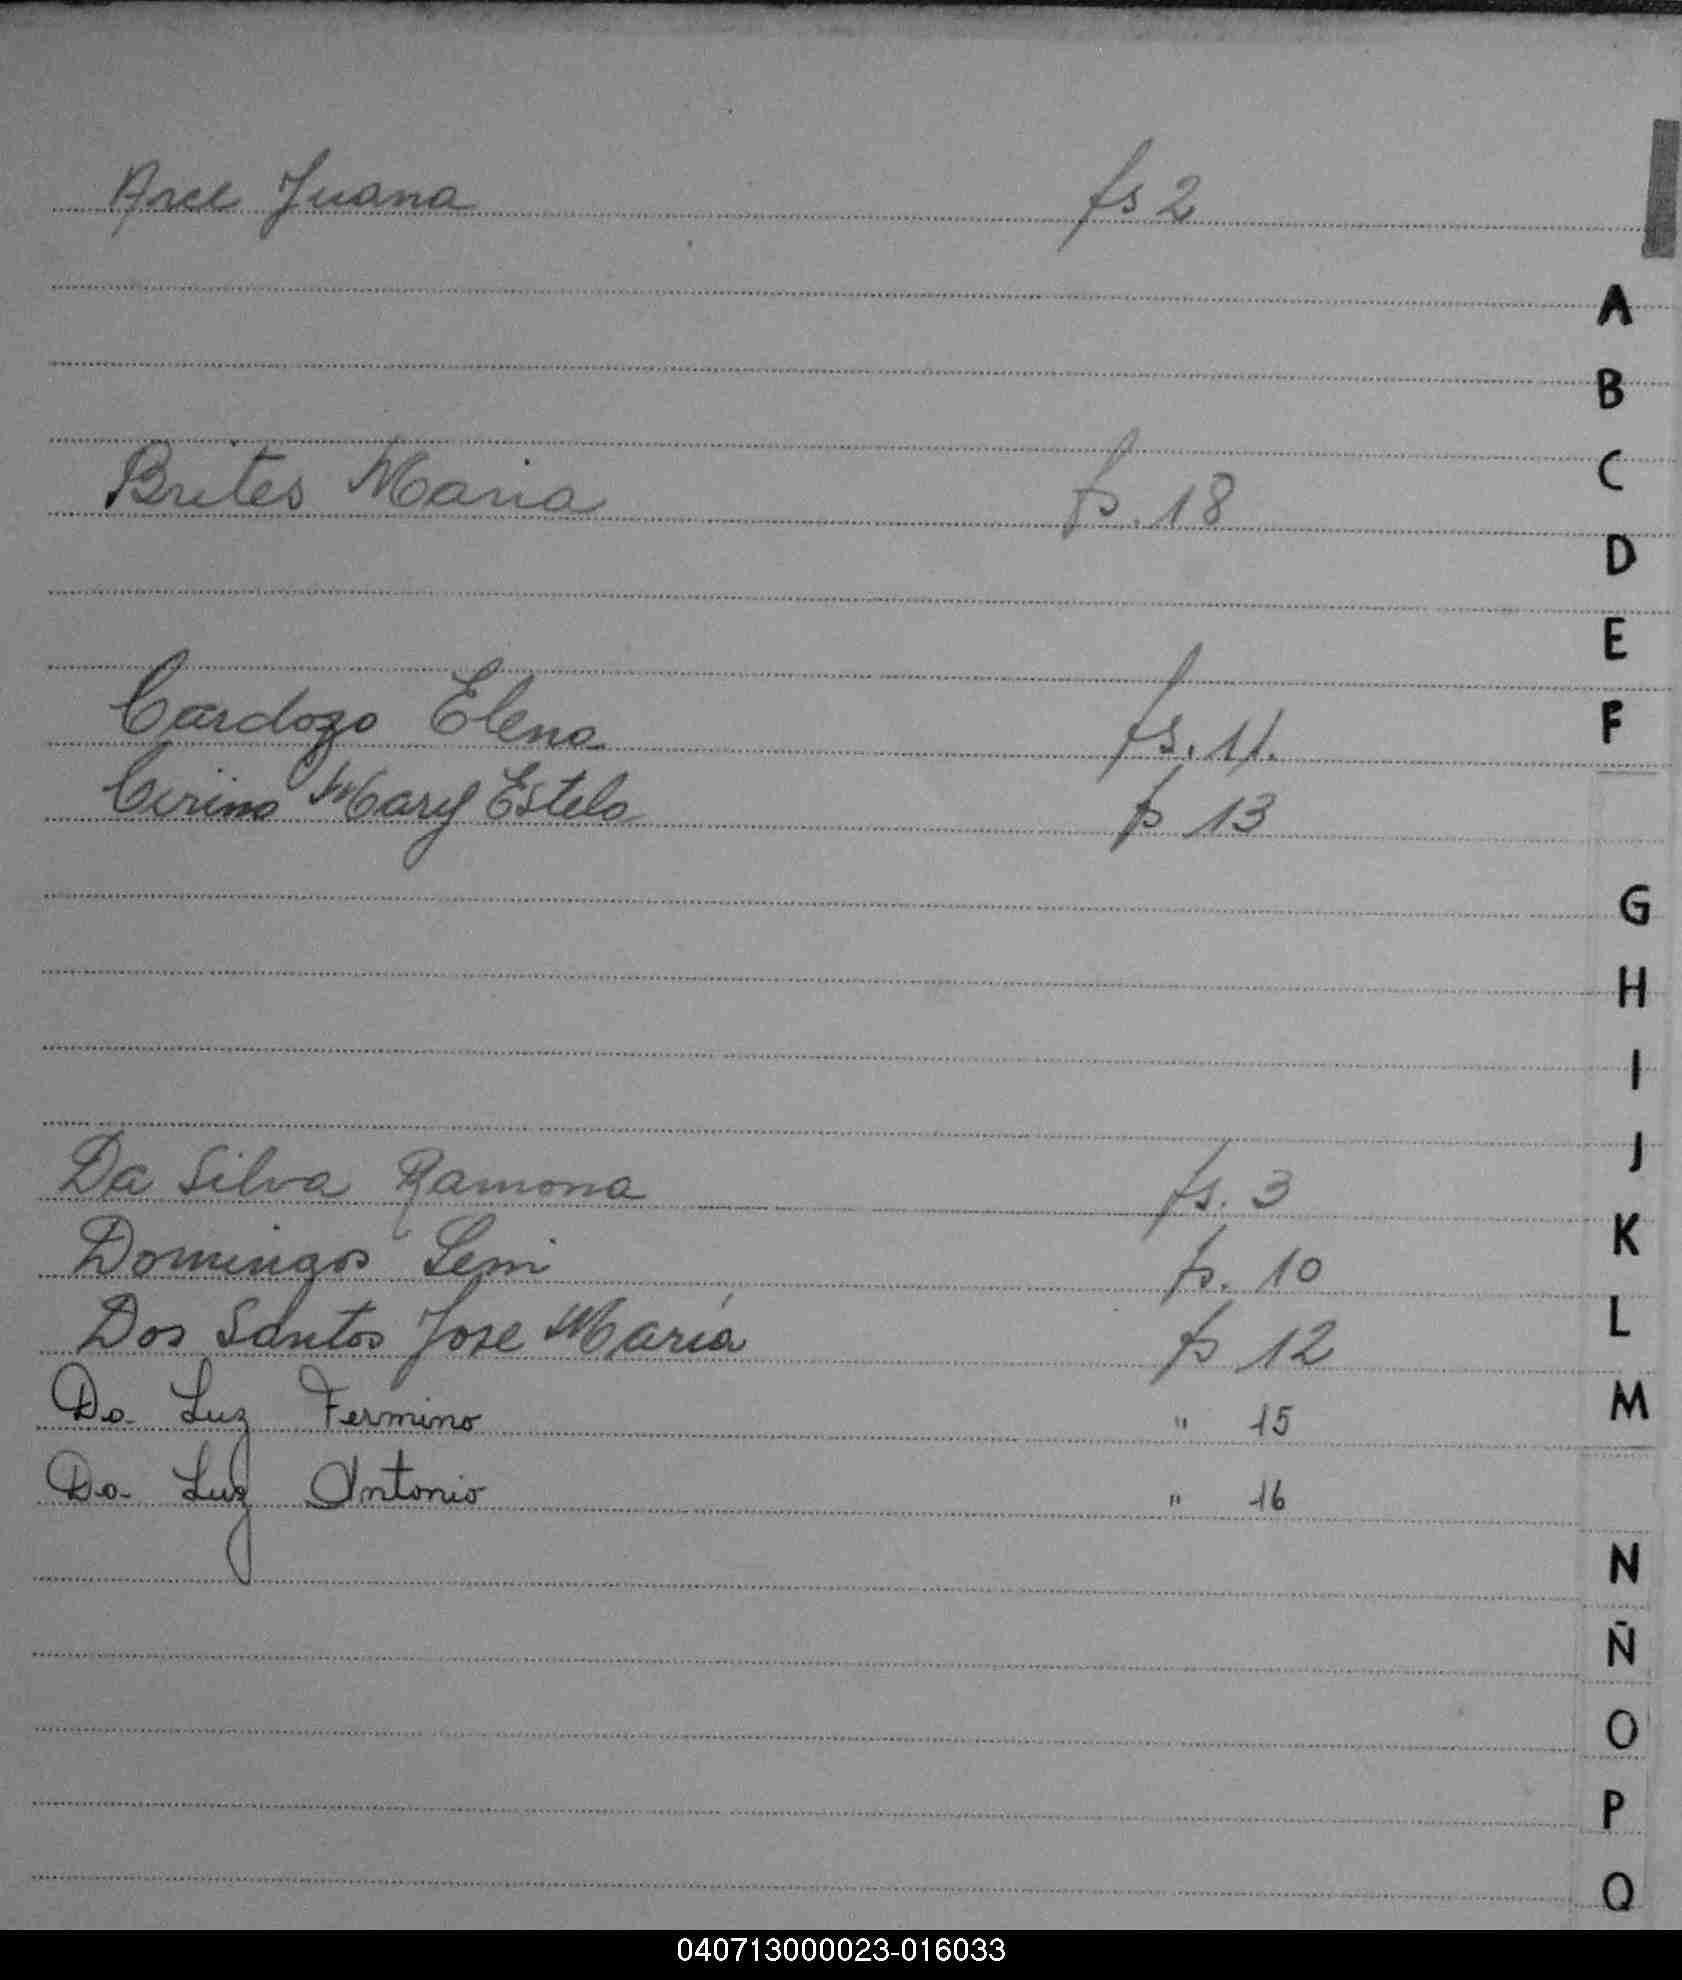 Arce Juana fs 2
A
B
Brites Maria fs. 18
C
D
E
Cardozo Elena fs. 11.
F
Cirino Mary Estela fs 13
G
H
I
J
Da Silva Ramona fs. 3
K
Domingos Leni fs. 10
L
Dos Santos Jose María fs 12
M
Da Luz Fermino " 15
Da Luz Antonio " 16
N
Ñ
O
P
Q
040713000023-016033